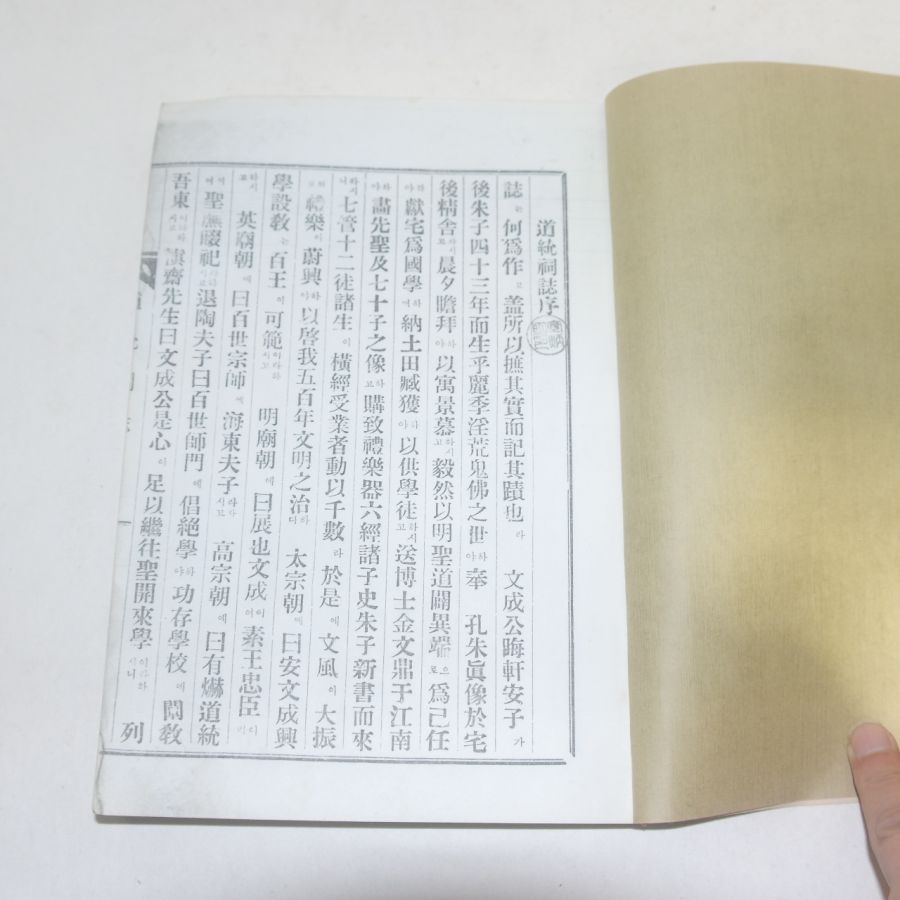 道統祠誌序
誌는何爲作고盖所以摭其實而記其蹟也라 文成公晦軒安子가
後朱子四十三年而生乎麗季淫荒鬼佛之世하야奉 孔朱眞像於宅
後精舍하시고晨夕瞻拜하야以寓景慕하시고毅然以明聖道闢異端으로爲己任
하야獻宅爲國學하며納土田臧獲하야以供學徒하시고送博士金文鼎于江南
하야畵先聖及七十子之像하고購致禮樂器六經諸子史朱子新書而來
하시니七管十二徒諸生이橫經受業者動以千數라於是에文風이大振
하고禮樂이蔚興하야以啓我五百年文明之治하다 太宗朝에曰安文成興
學設敎는百王이可範이라하시고 明廟朝에曰展也文成이여素王忠臣
하시고 英廟朝에曰百世宗師 海東夫子라하시고 高宗朝에曰有爀道統
聖廡啜祀라하시고退陶夫子曰百世師門에倡絕學하야功存學校에閎敎
吾東이라하시고 齋先生曰文成公是心이足以繼往聖開來學이라하시니 列